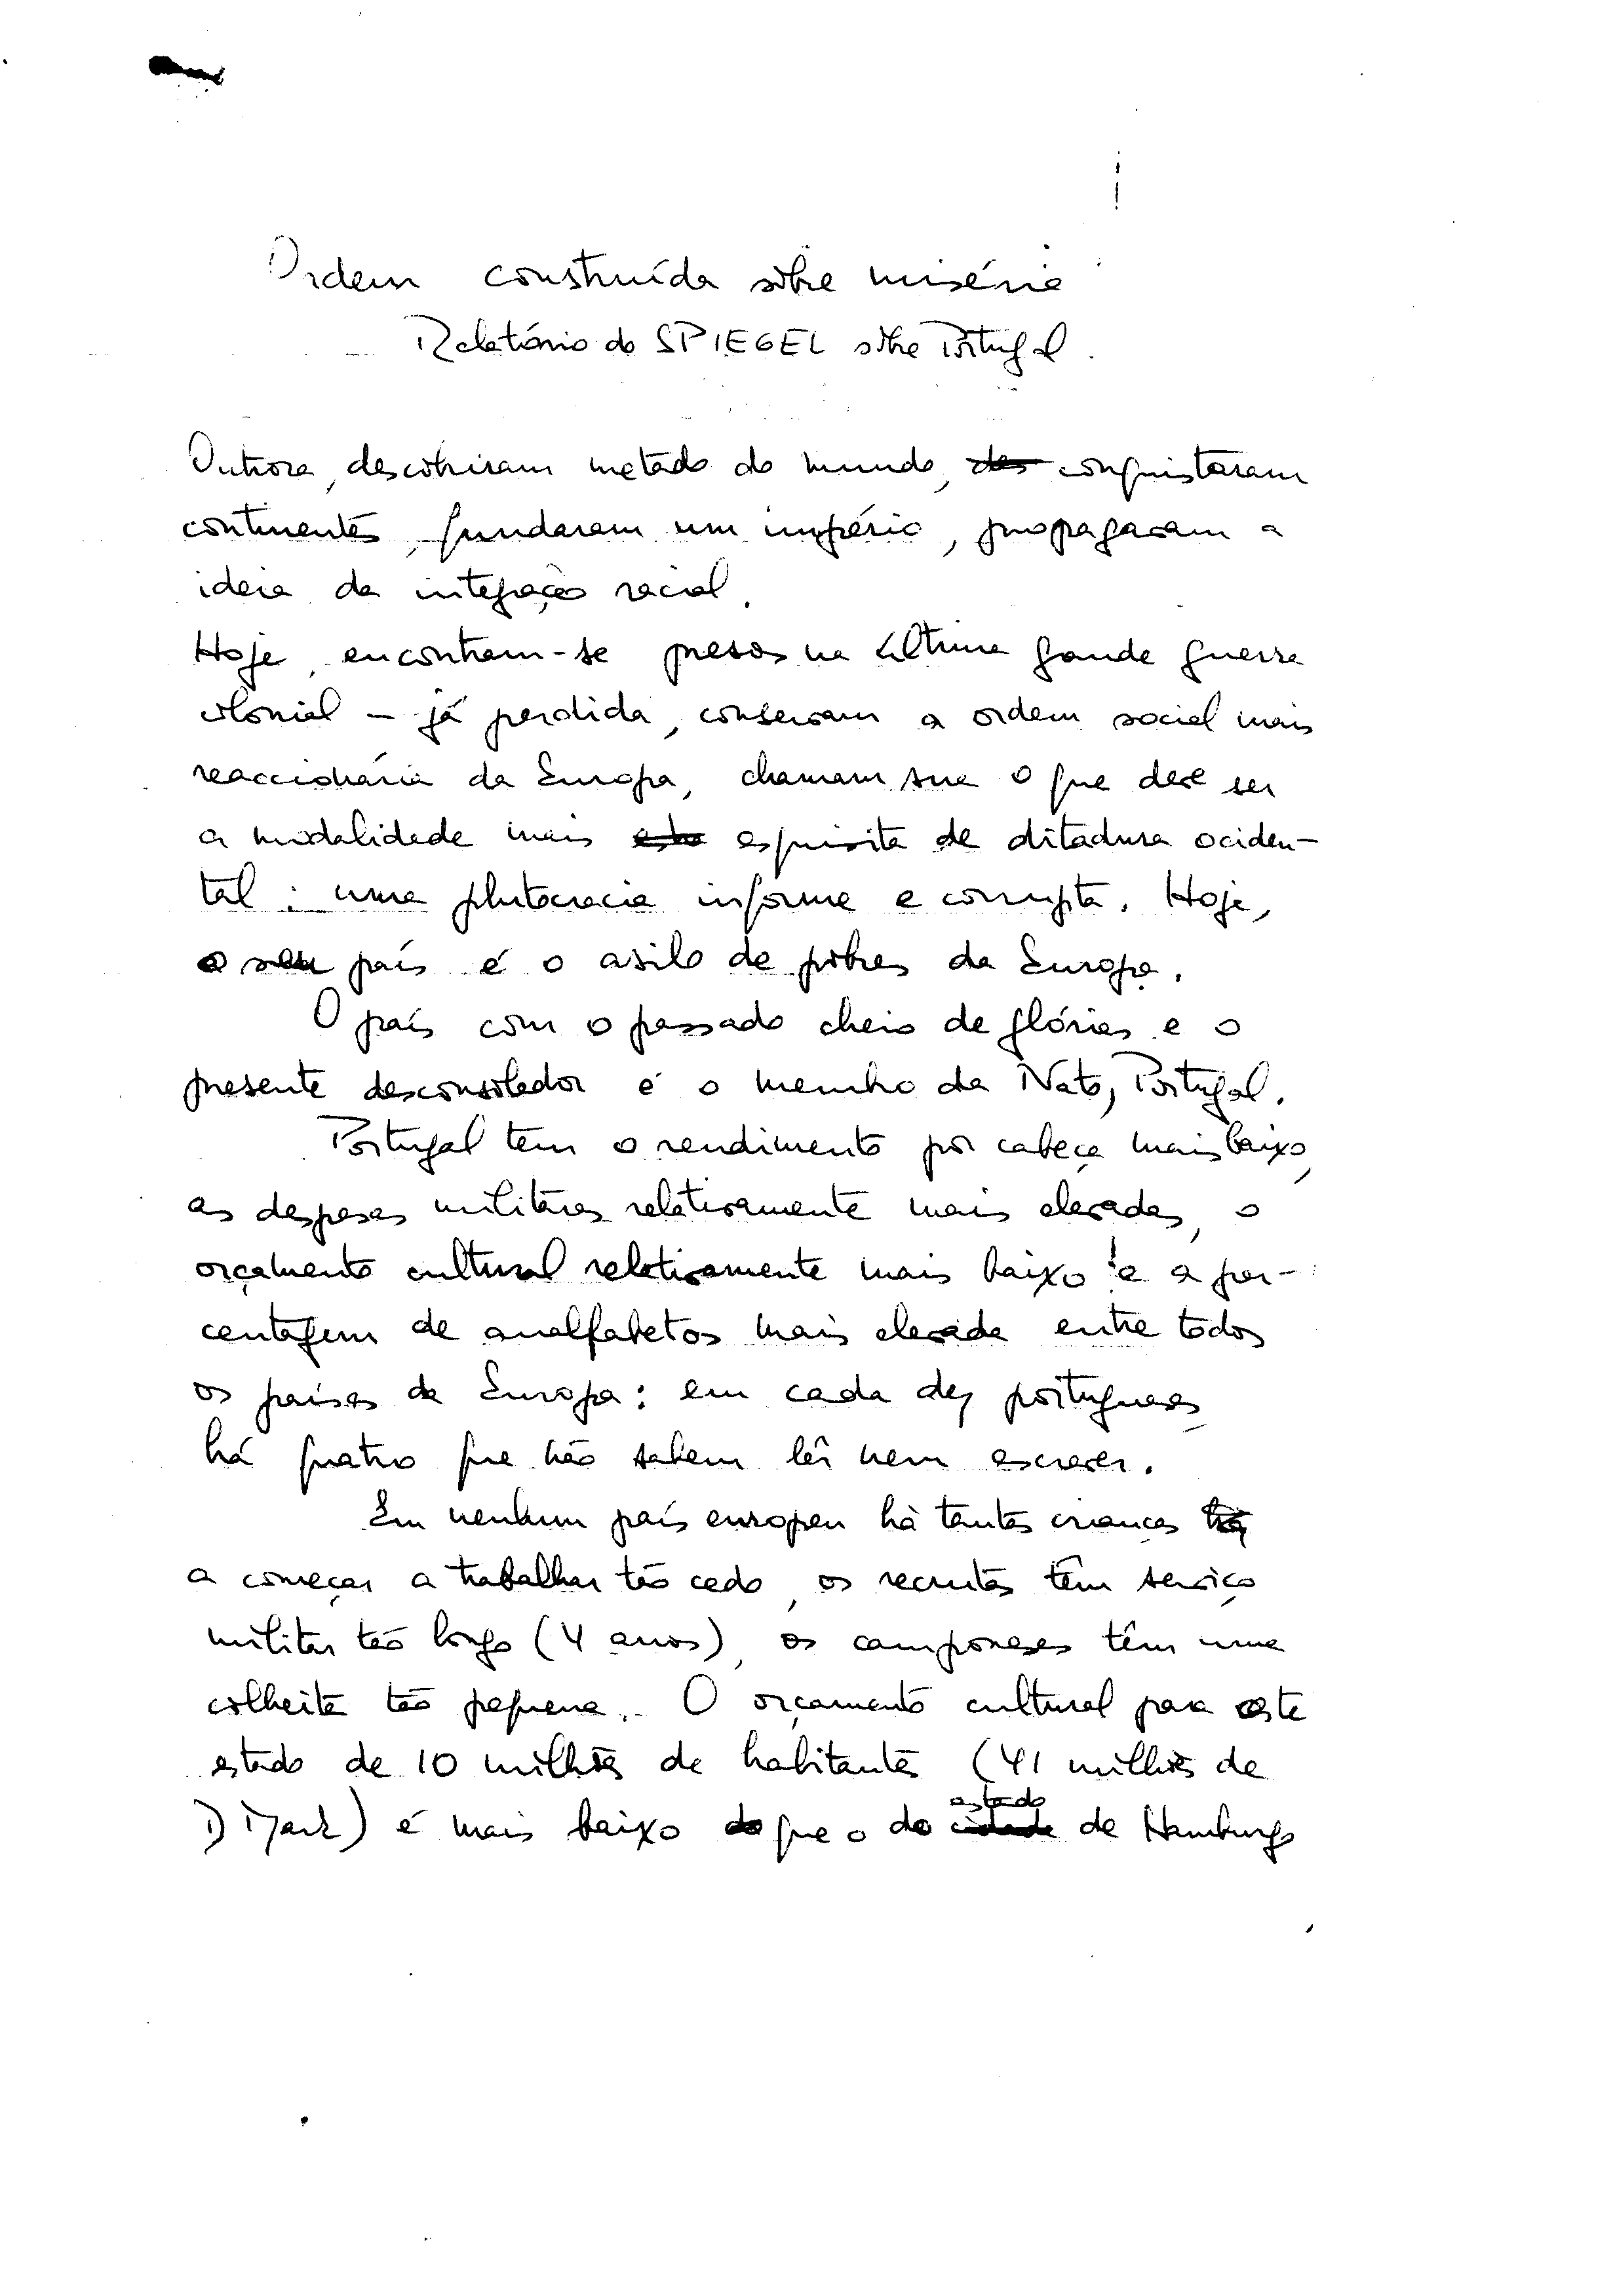 Ordem construída sôbre miséria
Relatório do SPIEGEL sôbre Portugal.
Outrora, descobriram metade do mundo, des conquistaram
continentes, fundaram um império, propagaram a
ideia da integração racial.
Hoje, encontram-se presos na última grande guerra
colonial – já perdida, conservam a ordem social mais
reaccionária da Europa, chamam sua o que deve ser
a modalidade mais esquisita de ditadura ociden-
tal: uma plutocracia informe e corrupta. Hoje,
o seu país é o asilo de pobres da Europa.
O país com o passado cheio de glórias e o
presente desconsolador é o membro da Nato, Portugal.
Portugal tem o rendimento por cabeça mais baixo,
as despesas militares relativamente mais elevadas, o
orçamento cultural relativamente mais baixo e a per-
centagem de analfabetos mais elevada entre todos
os países da Europa: em cada dez portugueses
há quatro que não sabem lêr nem escrever.
Em nenhum país europeu há tantas crianças
a começar a trabalhar tão cedo, os recrutas têm serviço
militar tão longo (4 anos), os camponeses têm uma
colheita tão pequena. O orçamento cultural para este
estado de 10 milhões de habitantes (41 milhões de
D Mark) é mais baixo do que o do estado de Hamburgo